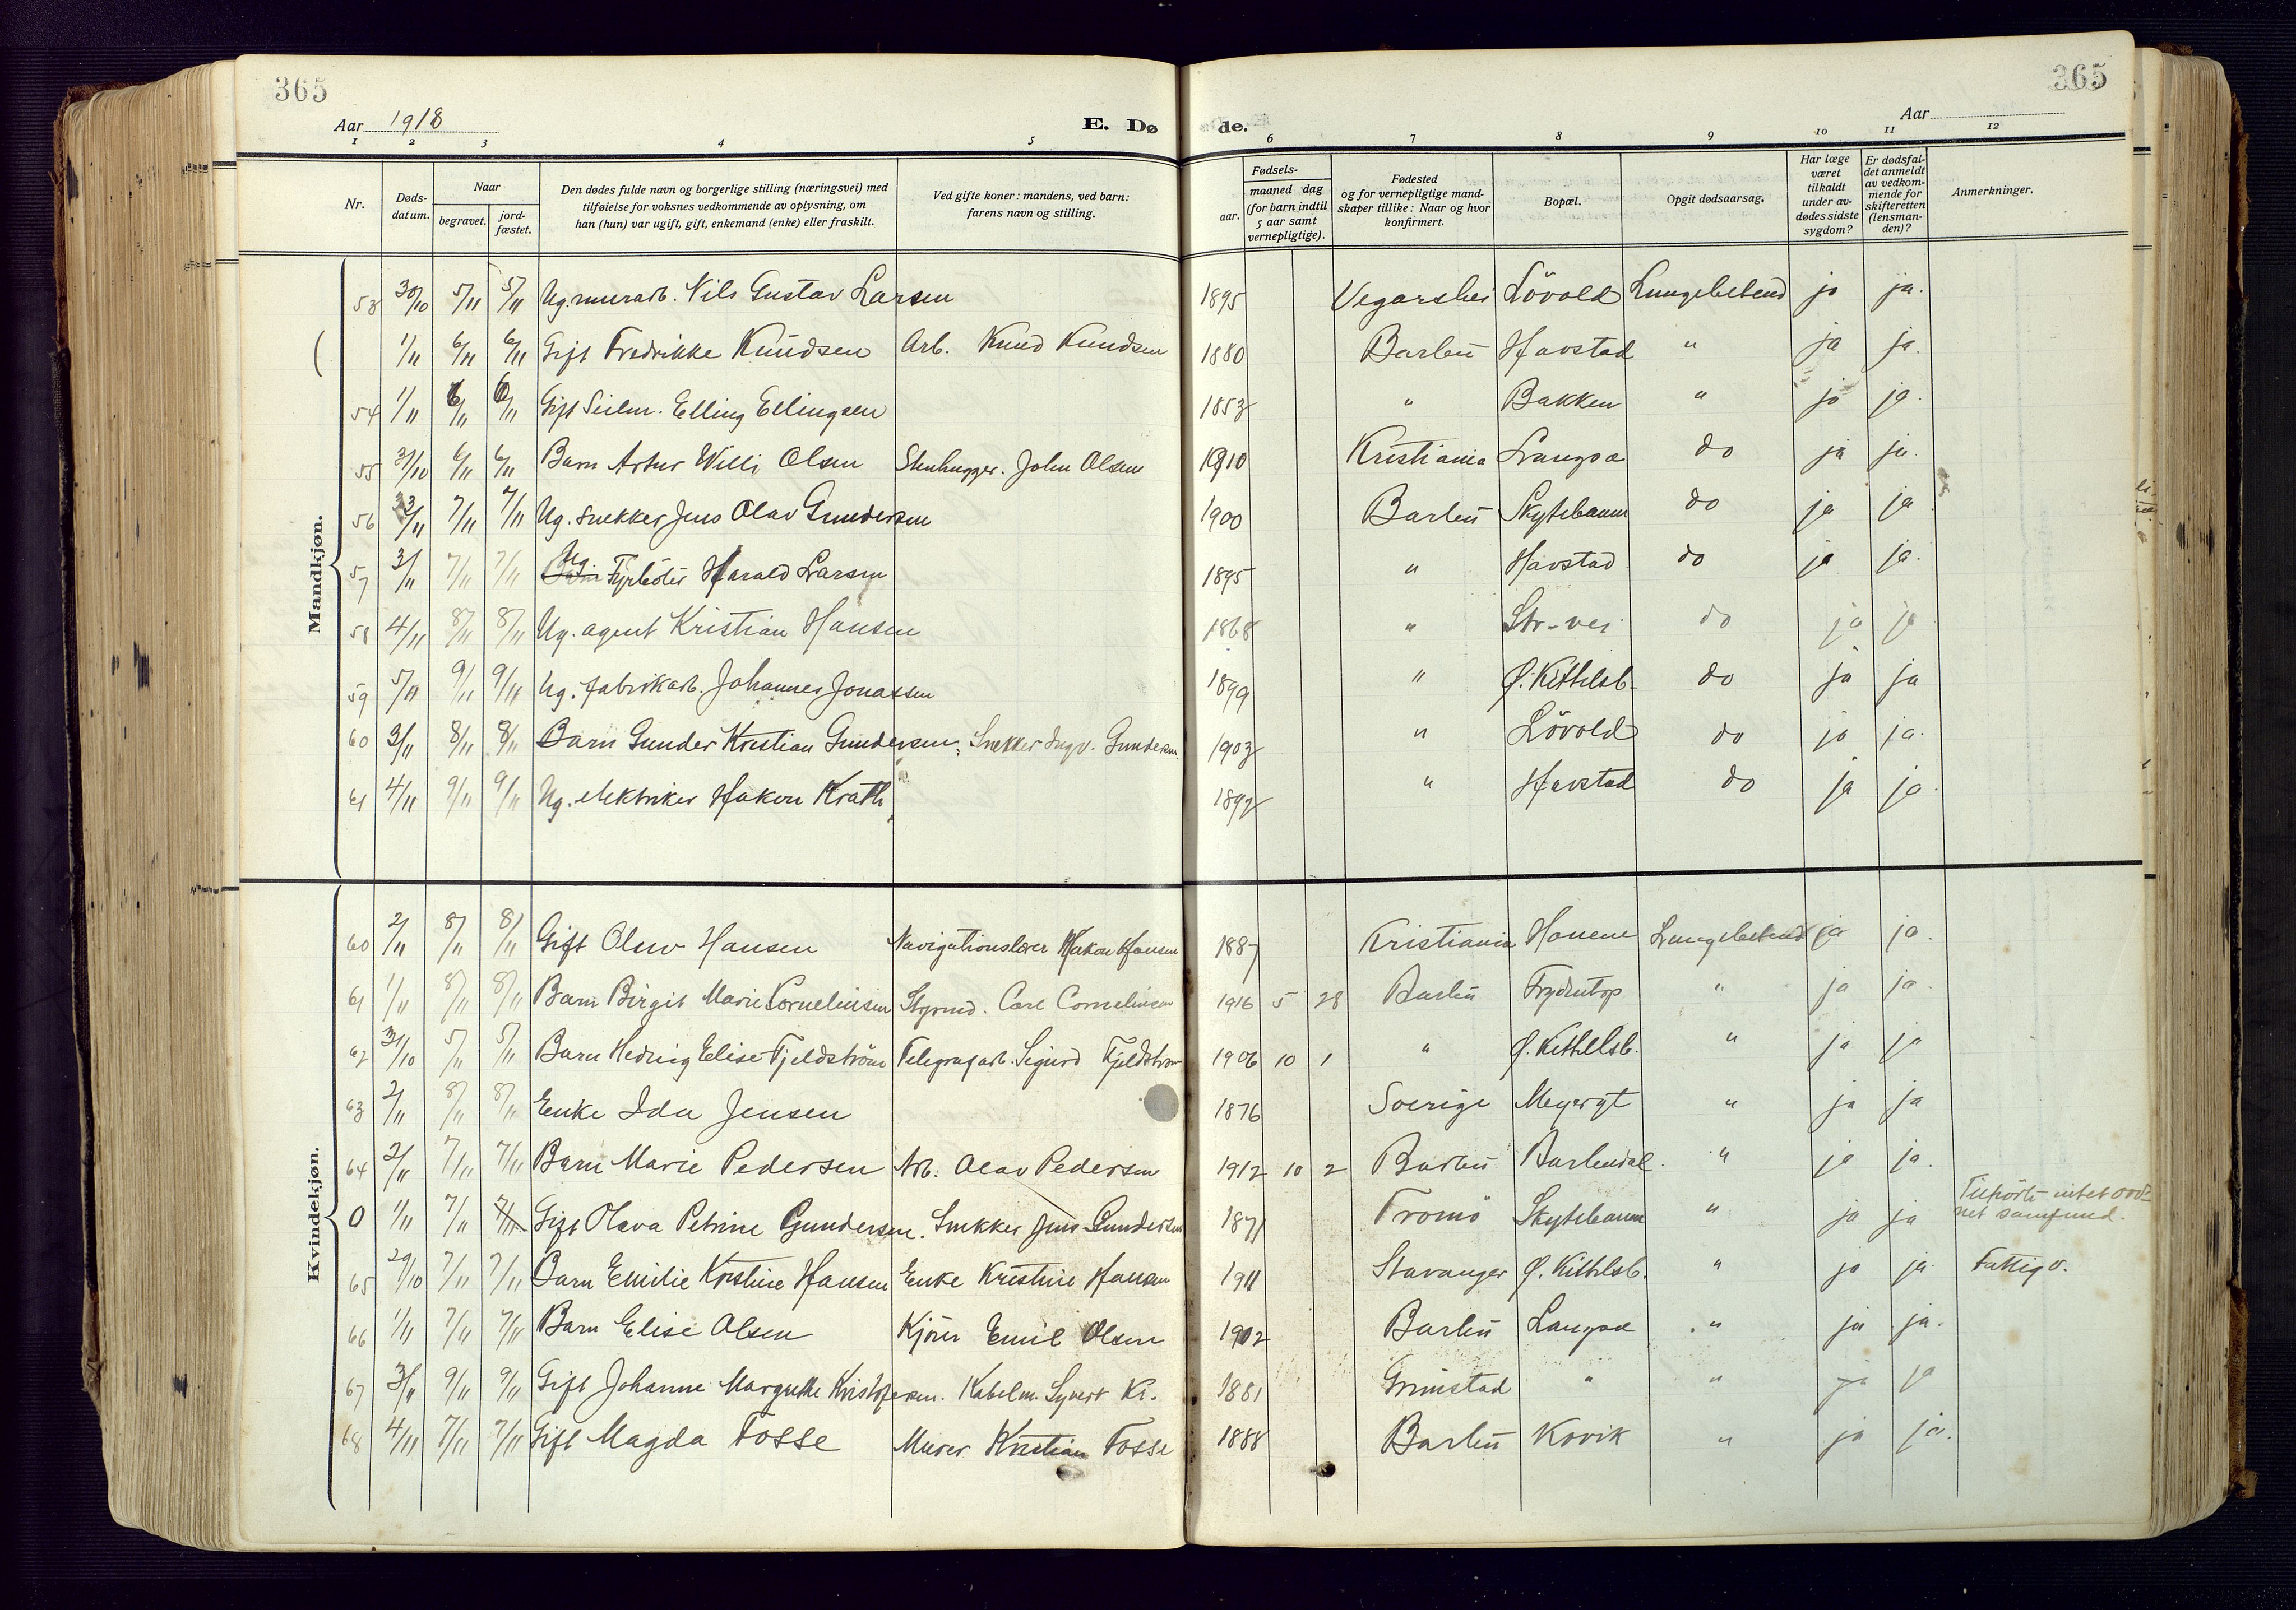 365
365
Aar 1918
E. Dø
de.
Aar
1 2 3 4 5 6 7 8 9 10 11 12
Nr.
Døds-
datum.
Naar
begravet.
jord-
fæstet.
Den dødes fulde navn og borgerlige stilling (næringsvei) med
tilføielse for voksnes vedkommende av oplysning, om
han (hun) var ugift, gift, enkemand (enke) eller fraskilt.
Ved gifte koner: mandens, ved barn:
farens navn og stilling.
Fødsels-
aar.
maaned dag
(for barn indtil
5 aar samt
vernepligtige).
Fødested
og for vernepligtige mand-
skaper tillike: Naar og hvor
konfirmert.
Bopæl.
Opgit dødsaarsag.
Har læge
været
tilkaldt
under av-
dødes sidste
sygdom?
Er dødsfal-
det anmeldt
av vedkom-
mende for
skifteretten
(lensman-
den)?
Anmerkninger.
Mandkjøn.
53 30/10 5/11 5/11 Ug. murarb. Nils Gustav Larsen 1895 Vegarshei Lövold Lungebetend ja ja.
( 1/11 6/11 6/11 Gift Fredrikke Knudsen Arb. Knud Knudsen 1880 Barbu Havstad " ja ja.
54 1/11 6/11 6/11 Gift Seilm. Elling Ellingsen 1853 " Bakken " ja ja.
55 31/10 6/11 6/11 Barn Artur Willi Olsen Stenhugger. John Olsen 1910 Kristiania Langsæ do ja ja.
56 3/11 7/11 7/11 Ug. snekker Jens Olav Gundersen 1900 Barbu Skytebaun do ja ja
57 3/11 7/11 7/11 Ug. Fyrböter Harald Larsen 1895 " Havstad do ja ja.
58 4/11 8/11 8/11 Ug. agent Kristian Hansen 1868 " Str-vei do ja ja
59 5/11 9/11 9/11 Ug. fabrikarb. Johannes Jonassen 1899 " Ø. Kittelsb. do ja ja
60 3/11 8/11 8/11 Barn Gunder Kristian Gundersen, Snekker Ingv. Gundersen 1903 " Lövold do ja ja.
61 4/11 9/11 9/11 Ug. elektriker Hakon Krath 1892 " Havstad do ja ja.
Kvindekjøn.
60 2/11 8/11 8/11 Gift Oluv Hansen Navigationslærer Hakon Hansen 1887 Kristiania Honene Lungebetend ja ja.
61 1/11 8/11 8/11 Barn Birgit Marie Corneliusen Styrmd. Carl Corneliusen 1916 5 28 Barbu Frydentop " ja ja.
62 31/10 5/11 5/11 Barn Hedvig Elise Fjeldström Telegrafarb. Sigurd Fjeldström 1906 10 1 " Ø. Kittelsb. " ja ja
63 2/11 8/11 8/11 Enke Ida Jensen 1876 Sverige Meyergt " ja ja
64 2/11 7/11 7/11 Barn Marie Pedersen Arb. Olav Pedersen 1912 10 2 Barbu Barbudal. " ja ja.
0 1/11 7/11 7/11 Gift Olava Petrine Gundersen. Snekker Jens Gundersen 1871 Tromö Skytebaun " ja ja Tilhörte intet ord-
net samfund.
65 29/10 7/11 7/11 Barn Emilie Kristine Hansen Enke Kristine Hansen 1911 Stavanger Ø. Kittelsb. " ja ja. Fattigv.
66 1/11 7/11 7/11 Barn Elise Olsen Kjörer Emil Olsen 1902 Barbu Langsæ " ja ja.
67 3/11 9/11 9/11 Gift Johanne Margrethe Kristofersen. Kabelm. Syvert Kr. 1881 Grimstad " " ja ja
68 4/11 7/11 7/11 Gift Magda Fosse Murer Kristian Fosse 1888 Barbu Kovik " ja ja.